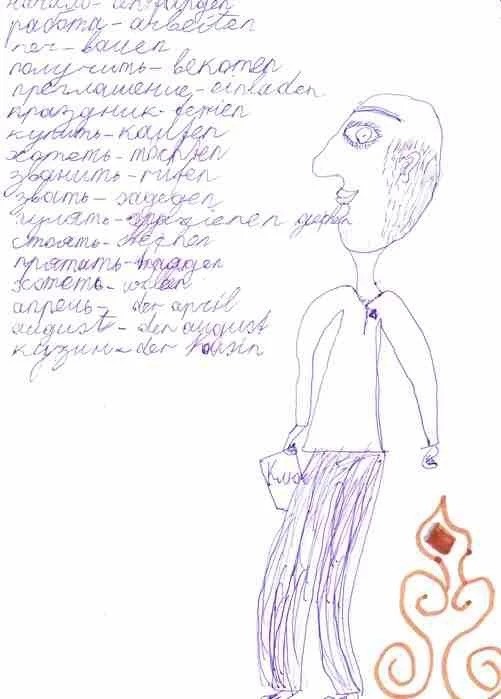 начало - anfangen
работа - arbeiten
bauen
получить - bekomen
преглашение - einladen
праздник - ferien
купить - kaufen
хотеть - mochten
званить - rufen
звать -
гулять - spazieren gehen
стоять - stehen
прятать -
хотеть - wollen
апрель - der april
august - der august
кузин - der kousin
Ключ